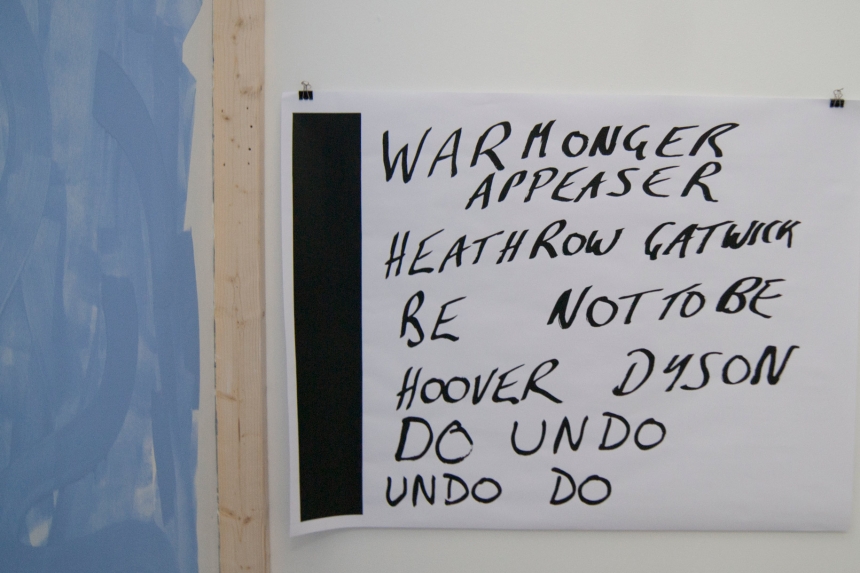 WARMONGER
APPEASER
HEATHROW GATWICK
BE NOT TO BE
HOOVER DYSON
DO UNDO
UNDO DO